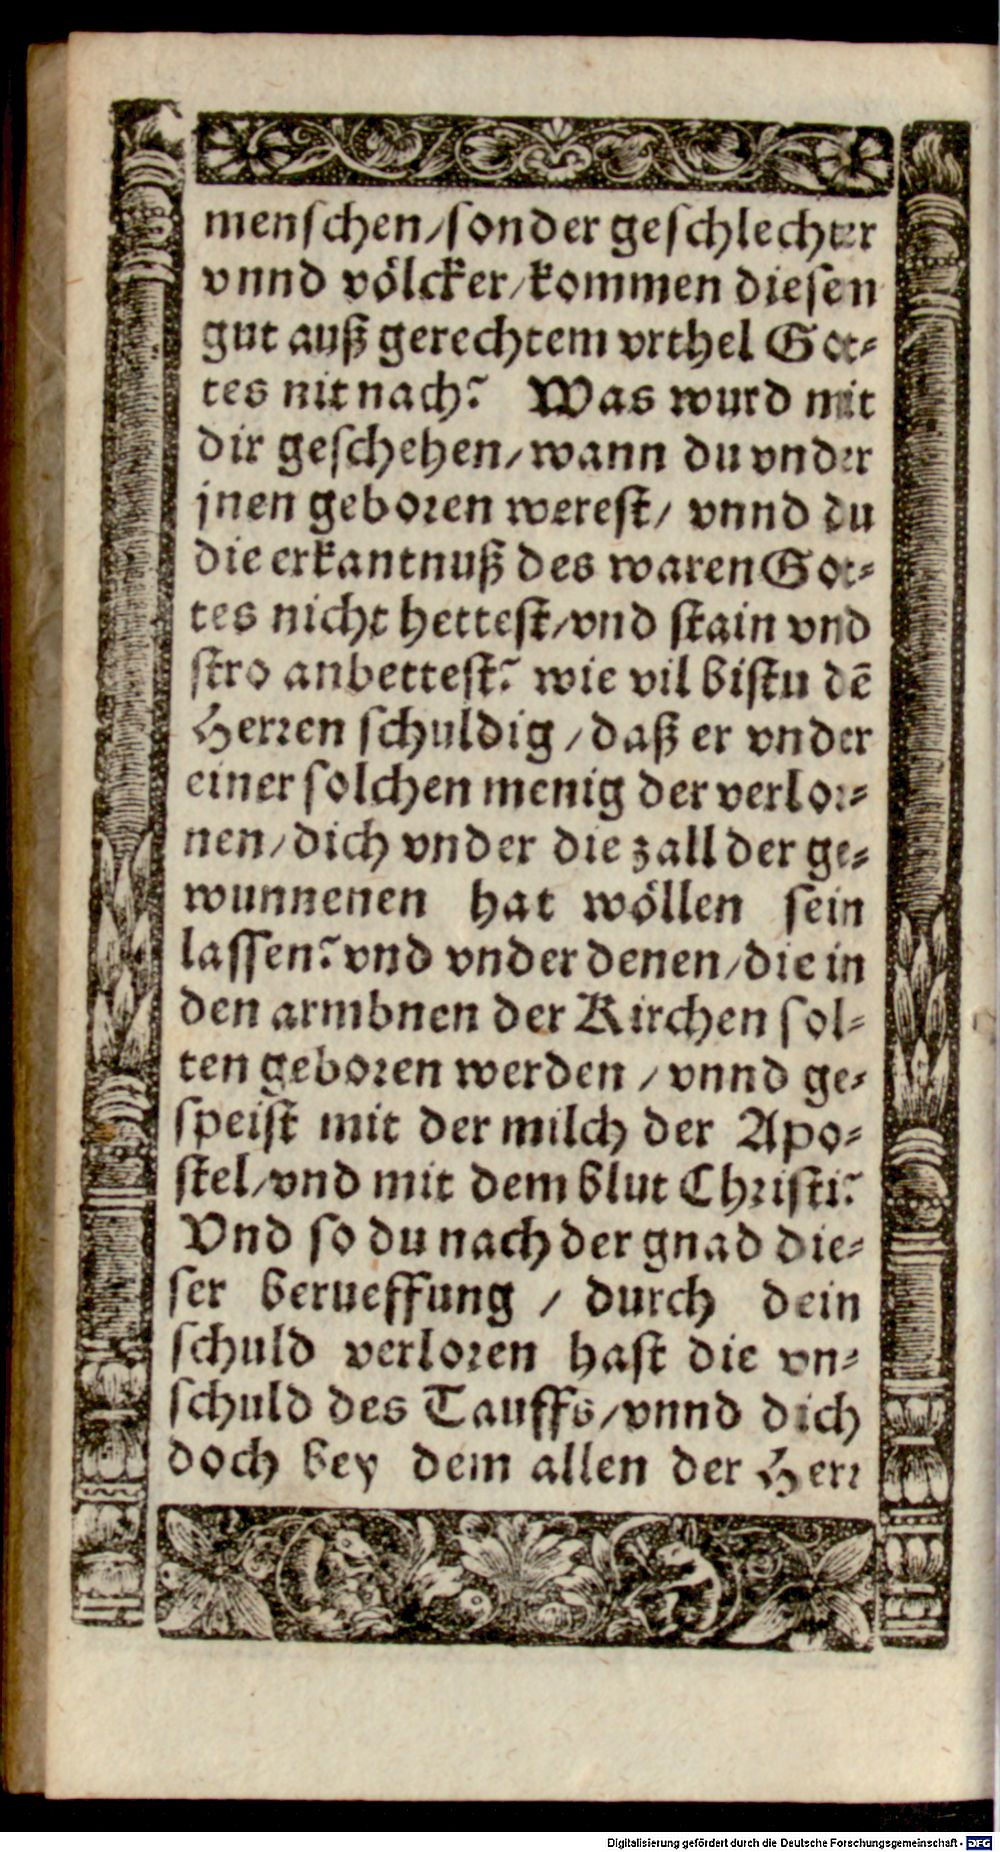 menschen/sonder geschlechter
vnnd völcker/kommen diesen
gut auß gerechtem vrthel Got-
tes nit nach? Was wurd mit
dir geschehen/wann du vnder
jnen geboren werest/ vnnd du
die erkantnuß des waren Got-
tes nicht hettest/vnd stain vnd
stro anbettest? wie vil bistu dē
Herren schuldig/daß er vnder
einer solchen menig der verlor-
nen/dich vnder die zall der ge-
wunnenen hat wöllen sein
lassen? vnd vnder denen/die in
den armbnen der Kirchen sol-
ten geboren werden/vnnd ge-
speist mit der milch der Apo-
stel/vnd mit dem blut Christi?
Vnd so du nach der gnad die-
ser berueffung/ durch dein
schuld verloren hast die vn-
schuld des Tauffs/vnnd dich
doch bey dem allen der Herr
Digitalisierung gefördert durch die Deutsche Forschungsgemeinschaft - DFG